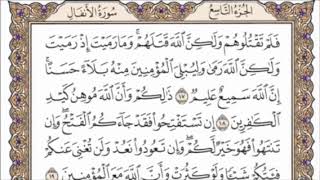 سُورَةُ الأَنفَالِ الجُزْءُ التَّاسِعُ
فَلَمْ تَقْتُلُوهُمْ وَلَٰكِنَّ اللَّهَ قَتَلَهُمْ ۚ وَمَا رَمَيْتَ إِذْ رَمَيْتَ
وَلَٰكِنَّ اللَّهَ رَمَىٰ ۚ وَلِيُبْلِيَ الْمُؤْمِنِينَ مِنْهُ بَلَاءً حَسَنًا ۚ
إِنَّ اللَّهَ سَمِيعٌ عَلِيمٌ ١٧ ذَٰلِكُمْ وَأَنَّ اللَّهَ مُوهِنُ كَيْدِ
الْكَافِرِينَ ١٨ إِن تَسْتَفْتِحُوا فَقَدْ جَاءَكُمُ الْفَتْحُ ۖ وَإِن
تَنتَهُوا فَهُوَ خَيْرٌ لَّكُمْ ۖ وَإِن تَعُودُوا نَعُدْ وَلَن تُغْنِيَ عَنكُمْ
فِئَتُكُمْ شَيْئًا وَلَوْ كَثُرَتْ وَأَنَّ اللَّهَ مَعَ الْمُؤْمِنِينَ ١٩